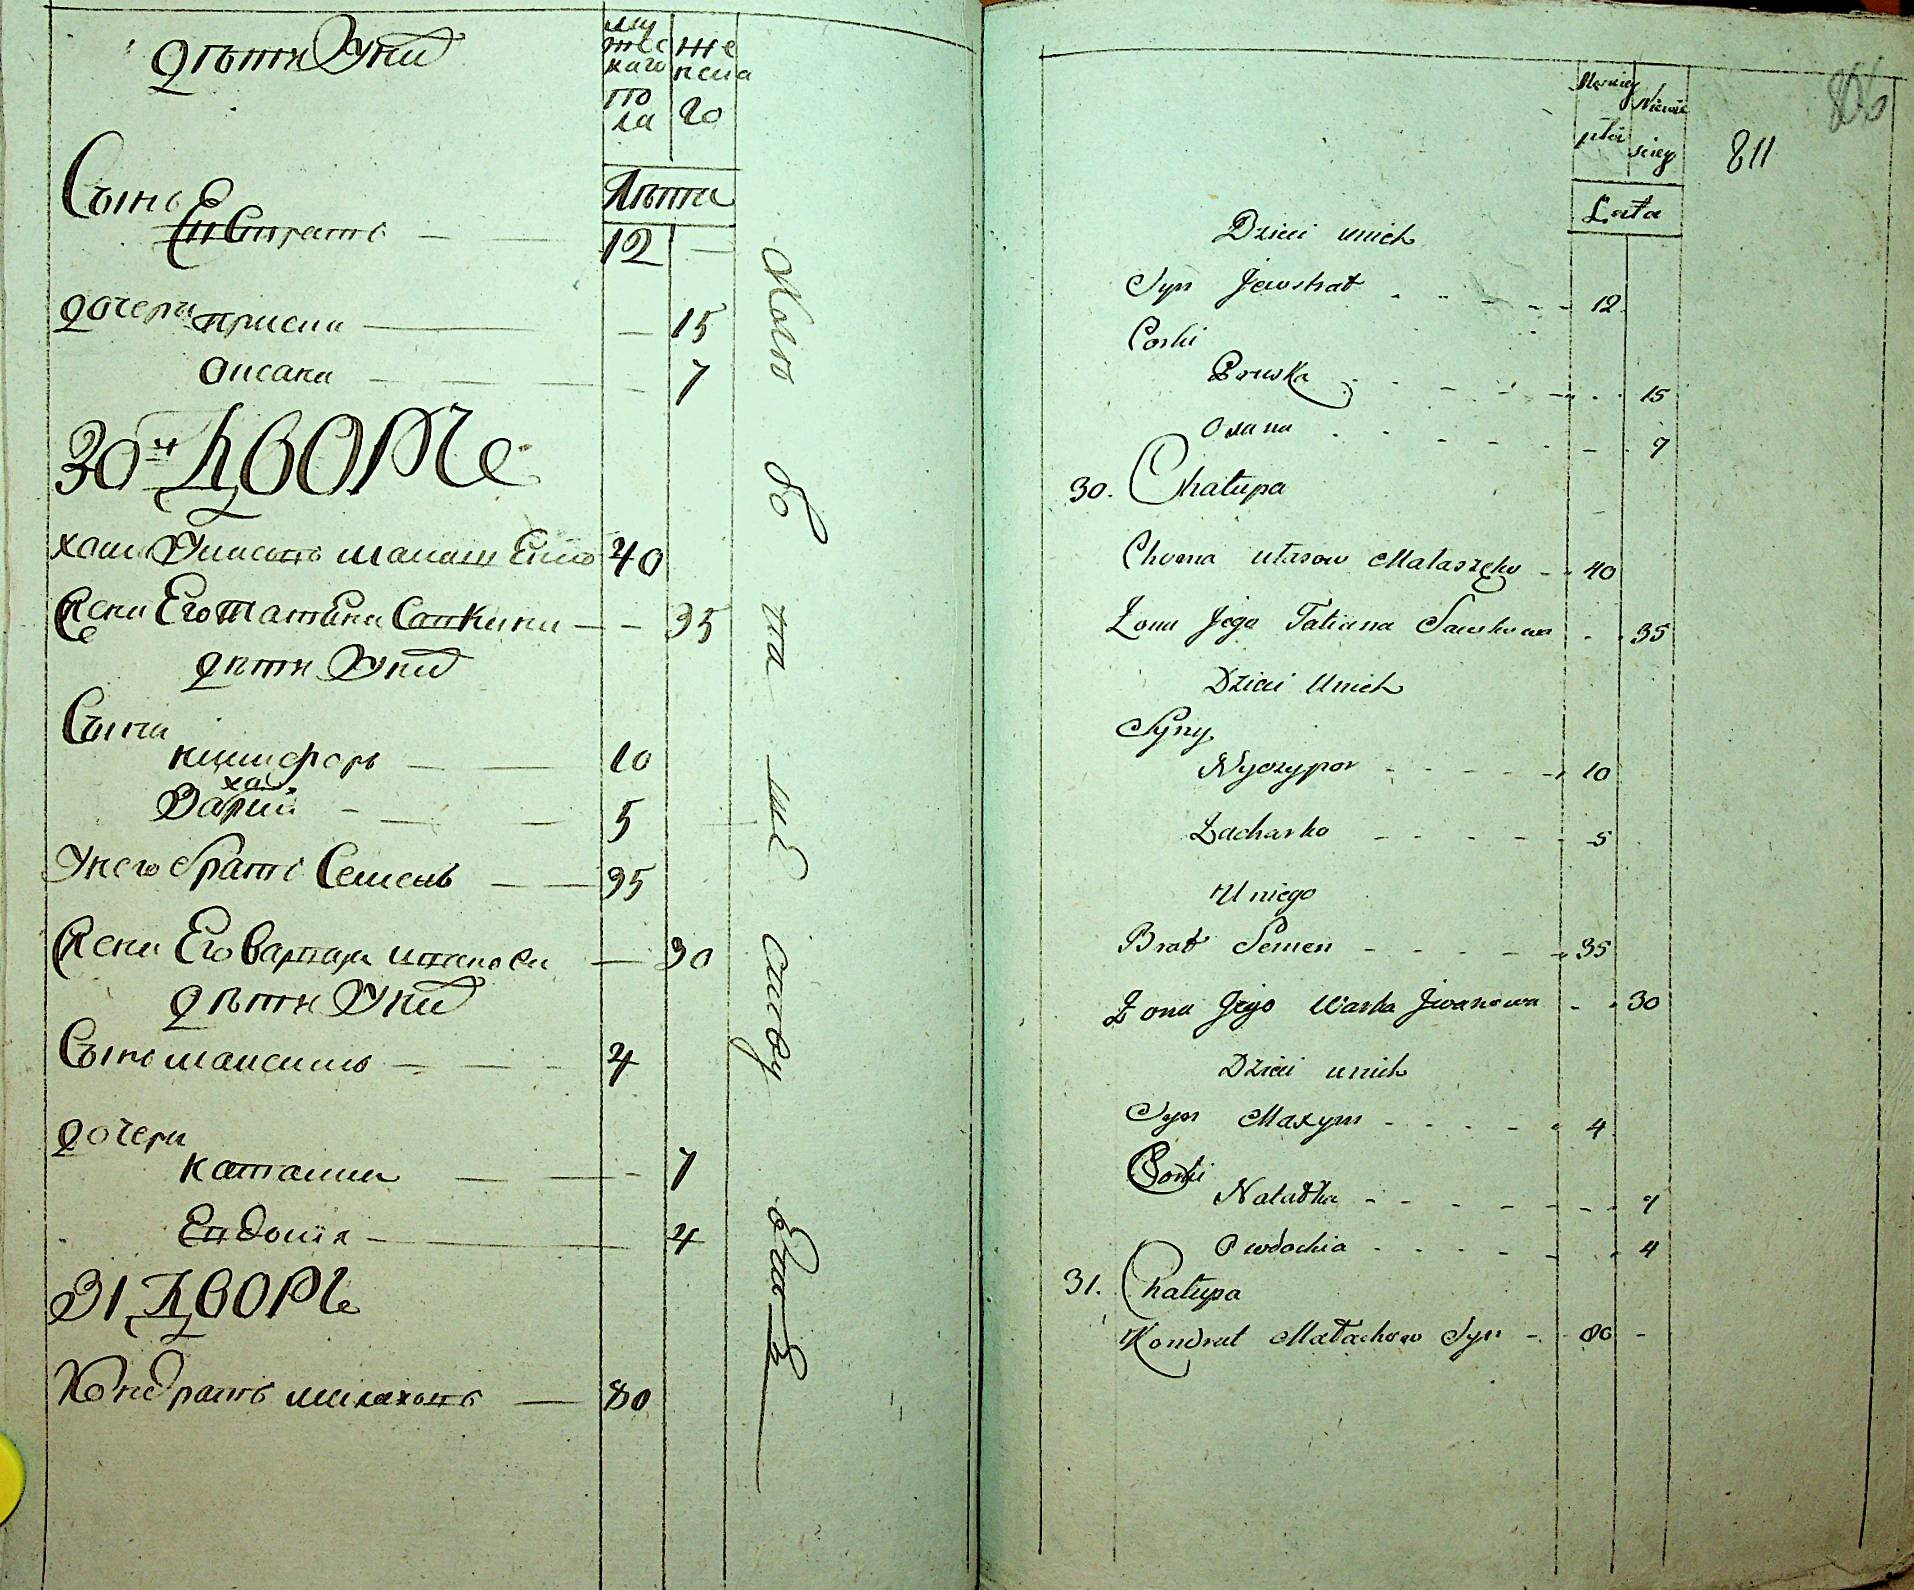 дѣти Уни
мужескаго пола
женскаго
Лѣта
Сынъ
Евстратъ — — 12 —
дочери
присна — — 15
оксана — — — — 7
30й ДВОРЪ
хома Уласовъ малашенко 40
Жена Его татиана Савкина — — 35
дѣти Уних
Сыны
ничипоръ — — 10
Захарий — — — 5
Унего братъ Семенъ — — 35
Жена Его Варвара иванова — 30
дѣти Уних
Сынъ максимъ — — — 4
дочери
наталия — — — 7
Евдокия — — 4
31 ДВОРЪ
Кондратъ малаховъ — 80
806
Męskiey płci
Niewieściey
811
Lata
Dzieci unich
Syn Jewstrat . . - - - - 12
Corki
Pruska . . - - - - . . 15
Oxana . . . - - - - - 7
30. Chałupa
Choma Ułasow Małaszęko - - 40
Żona Jego Tatiana Sawkowa . . 35
Dzieci Unich
Syny
Nyczypor - - - - - 10
Zacharko - - - - - 5
U niego
Brat Semen - - - - - 35
Żona Jego Warka Jwanowa - . 30
Dzieci unich
Syn Maxym - . . - . 4
Corki
Natałka - - - - - - . 7
Owdochia . . . . - . 4
31. Chałupa
Kondrat Małachow Syn - - 80 -